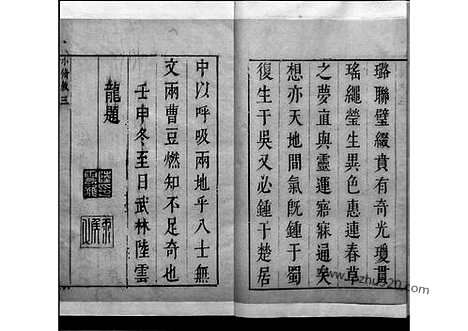 璐聯璧綴賁有奇光瓊貫
瑤繩瑩生異色惠連春草
之夢直與靈運寤寐通矣
想亦天地間氣旣鍾于蜀
復生于吳又必鍾于楚居
中以呼吸兩地乎八士無
文兩曹豆燃知不足奇也
壬申冬至日武林陸雲
龍題